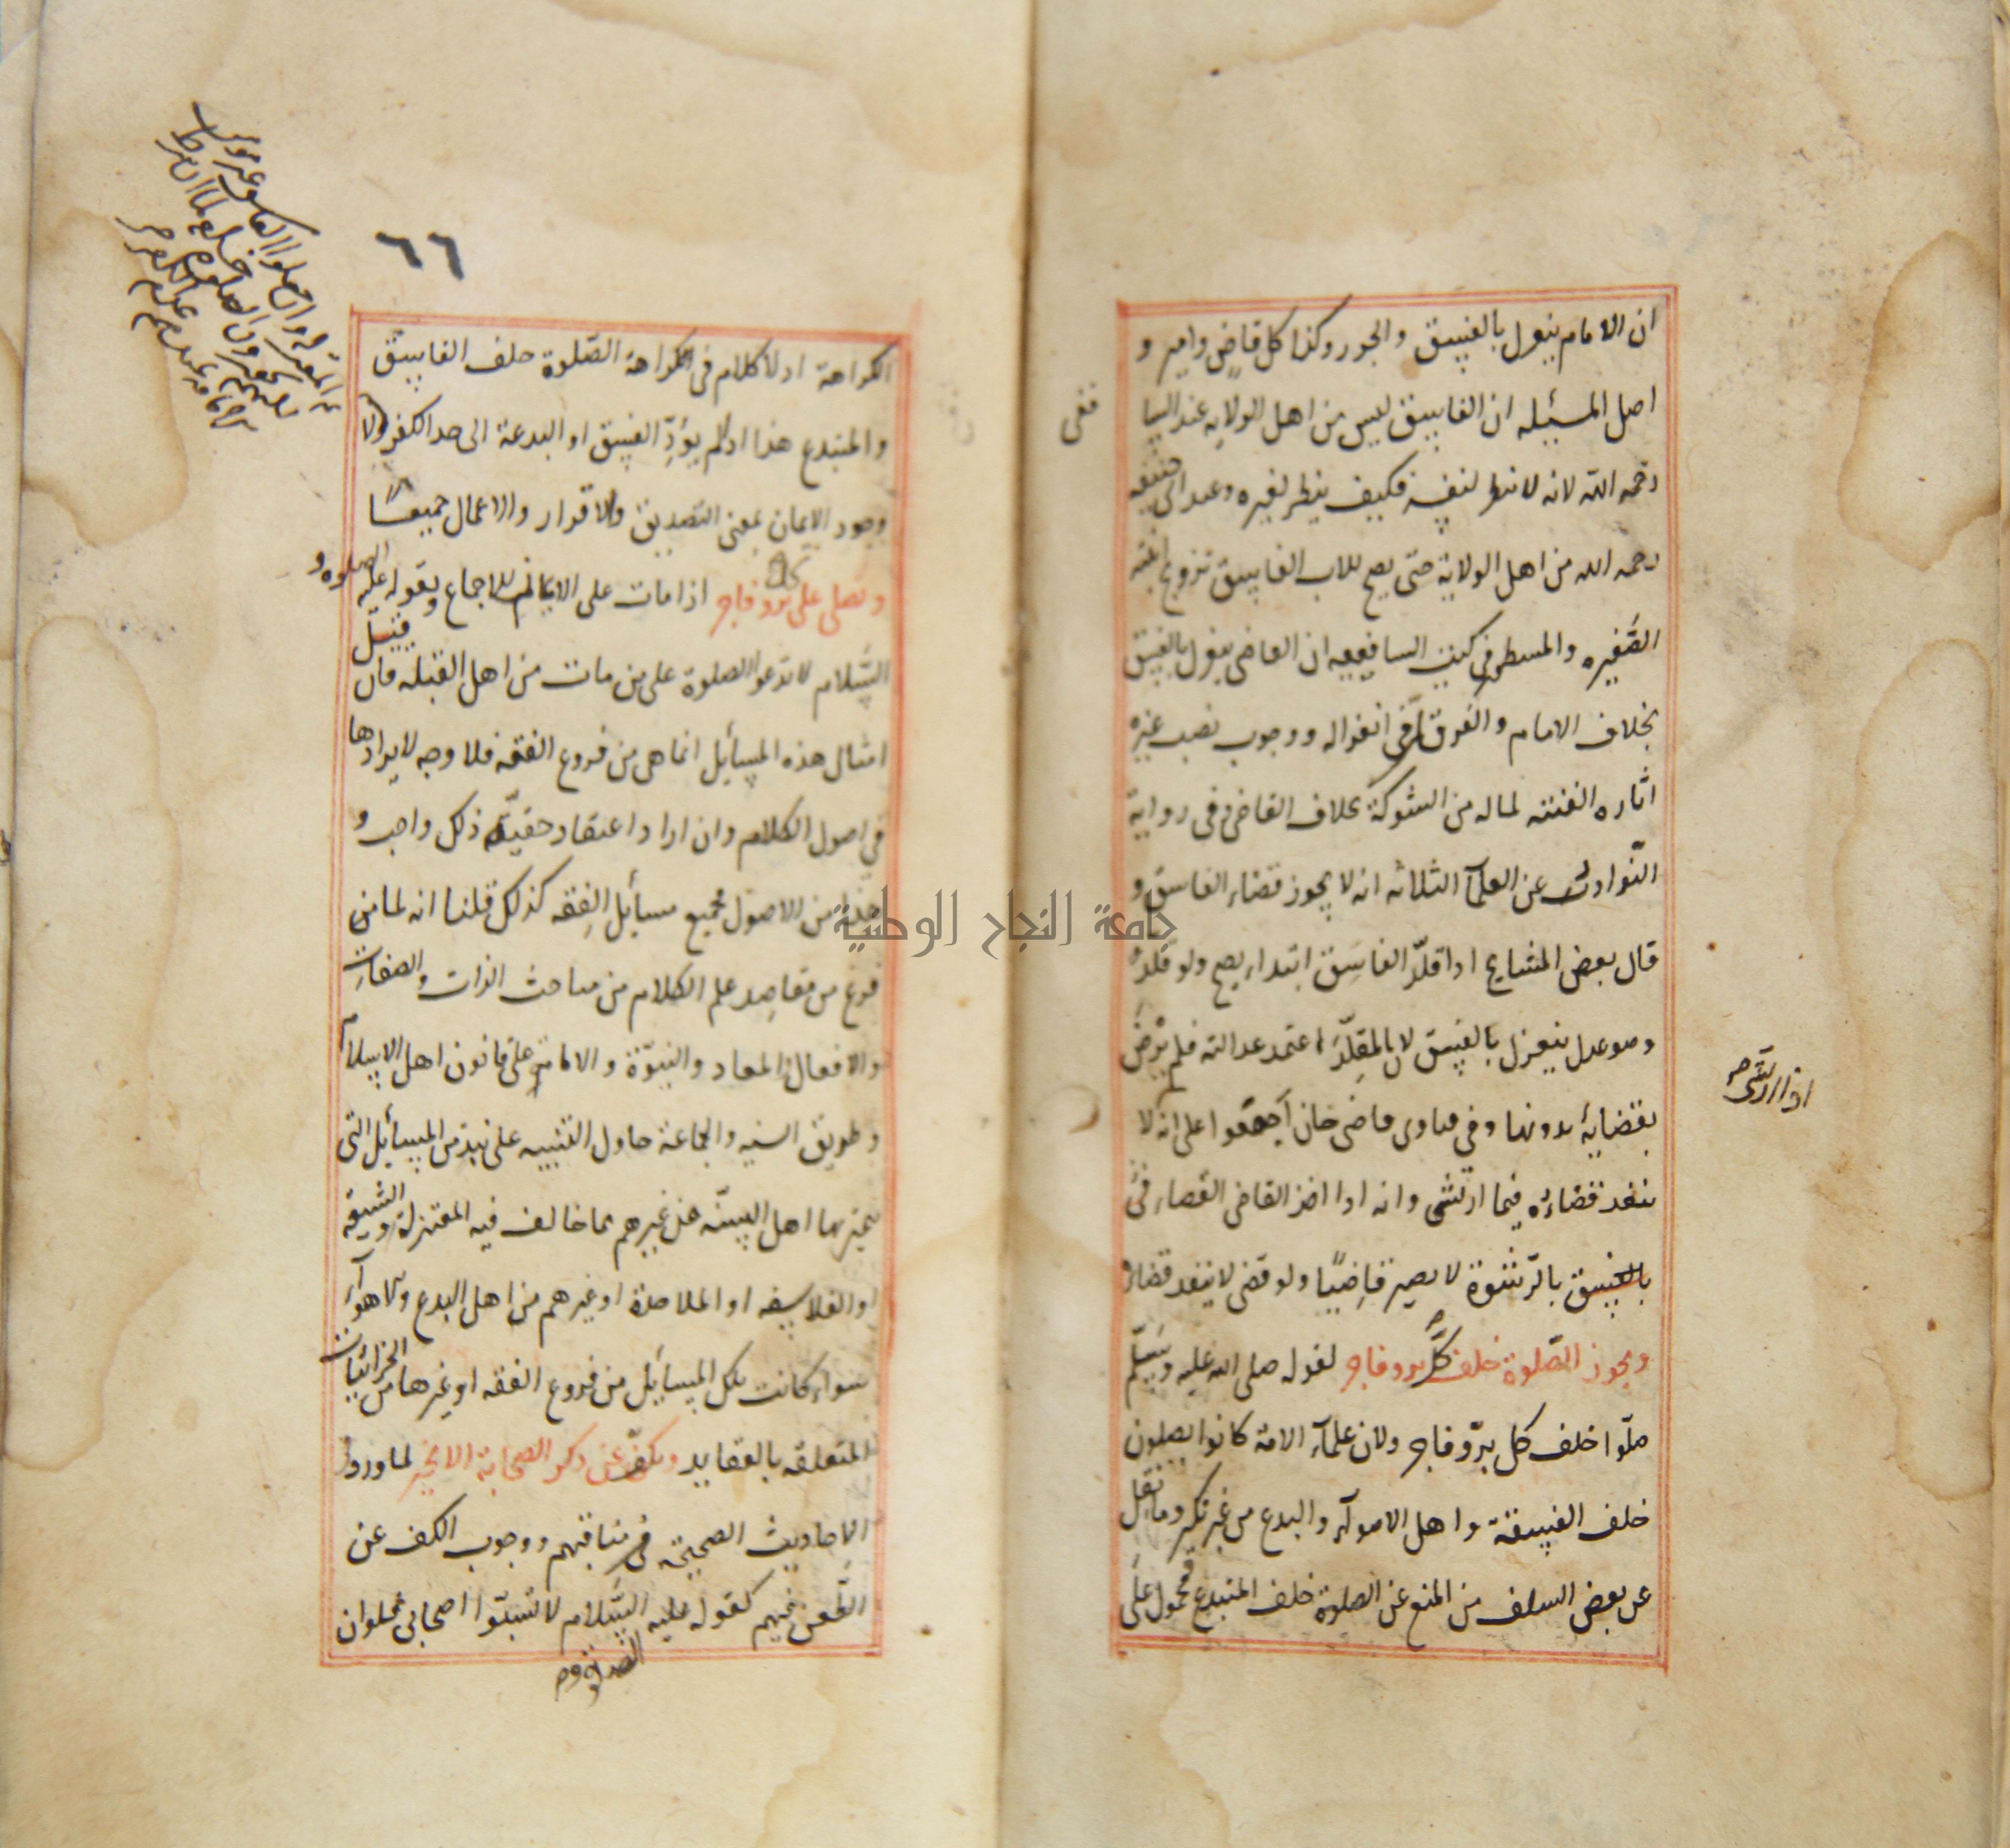 ان الامام ينعزل بالفسق والجور وكذا كل قاض وامير و
اصل المسئله ان الفاسق ليس من اهل الولايه عند الشا
فعي
رحمه الله لانه لا ينظر لنفسه فكيف ينظر لغيره وعند ابى حنيفه
رحمه الله من اهل الولاية حتى يصح للاب الفاسق تزويج ابنته
الصغيره والمسطور فى كتب الشافعيه ان القاضى ينعزل بالفسق
بخلاف الامام والفرق ان فى انعزاله ووجوب نصب غيره
اثاره الفتنه لما له من الشوكة بخلاف القاضى وفى رواية
النوادر عن العلمآ الثلاثه انه لا يجوز قضاء الفاسق و
قال بعض المشايخ اذا قلد الفاسق ابتداء يصح ولو قلد
وهو عدل ينعزل بالفسق لان المقلد اعتمد عدالته فلم يرض
بقضايه بدونها وفى فتاوى قاضى خان اجمعوا على انه لا
اذا ارتشى
ينفذ قضاءه فيما ارتشى وانه اذا اخذ القاضى القضاء
بالفسق بالرشوة لا يصير قاضيا ولو قضى لا ينفذ قضاؤه
ويجوز الصلوة خلف كل بر وفاجر لقوله صلى الله عليه وسلم
صلوا خلف كل بر وفاجر ولان علمآء الامة كانوا يصلون
خلف الفسقة واهل الاهوآء والبدع من غير نكير وما نقل
عن بعض السلف من المنع عن الصلوة خلف المبتدع فمحمول على
٦٦
الكراهة اذ لا كلام فى كراهة الصلوة خلف الفاسق
والمبتدع هذا اذا لم يؤد الفسق او البدعة الى حد الكفر
وجود الايمان بمعنى التصديق والاقرار والاعمال جميعا
ويصلى على كل بر وفاجر اذا مات على الايمان للاجماع ولقوله عليه الصلوة و
السلام لا تدعوا الصلوة على من مات من اهل القبله فان قيل
امثال هذه المسايل انما هى من فروع الفقه فلا وجه لايرادها
فى اصول الكلام وان اراد اعتقاد حقية ذلك واجب و
هذا من الاصول فجميع مسايل الفقه كذلك قلنا انه لما من
فرغ من مقاصد علم الكلام من مباحث الذات والصفات
والافعال والمعاد والنبوة والامامة على قانون اهل الاسلام
وطريق السنه والجماعة حاول التنبيه على نبذ من المسايل التى
يتميز بها اهل السنه عن غيرهم مما خالف فيه المعتزلة والشيعه
او الفلاسفه او الملاحدة او غيرهم من اهل البدع والاهوآء
سواء كانت تلك المسايل من فروع الفقه او غيرها من الجزئيات
المتعلقه بالعقايد ويكف عن ذكر الصحابة الا بخير لما ورد
الاحاديث الصحيحه فى مناقبهم ووجوب الكف عن
الطعن فيهم كقوله عليه السلام لا تسبوا اصحابى فلو ان
جامعة النجاح الوطنية